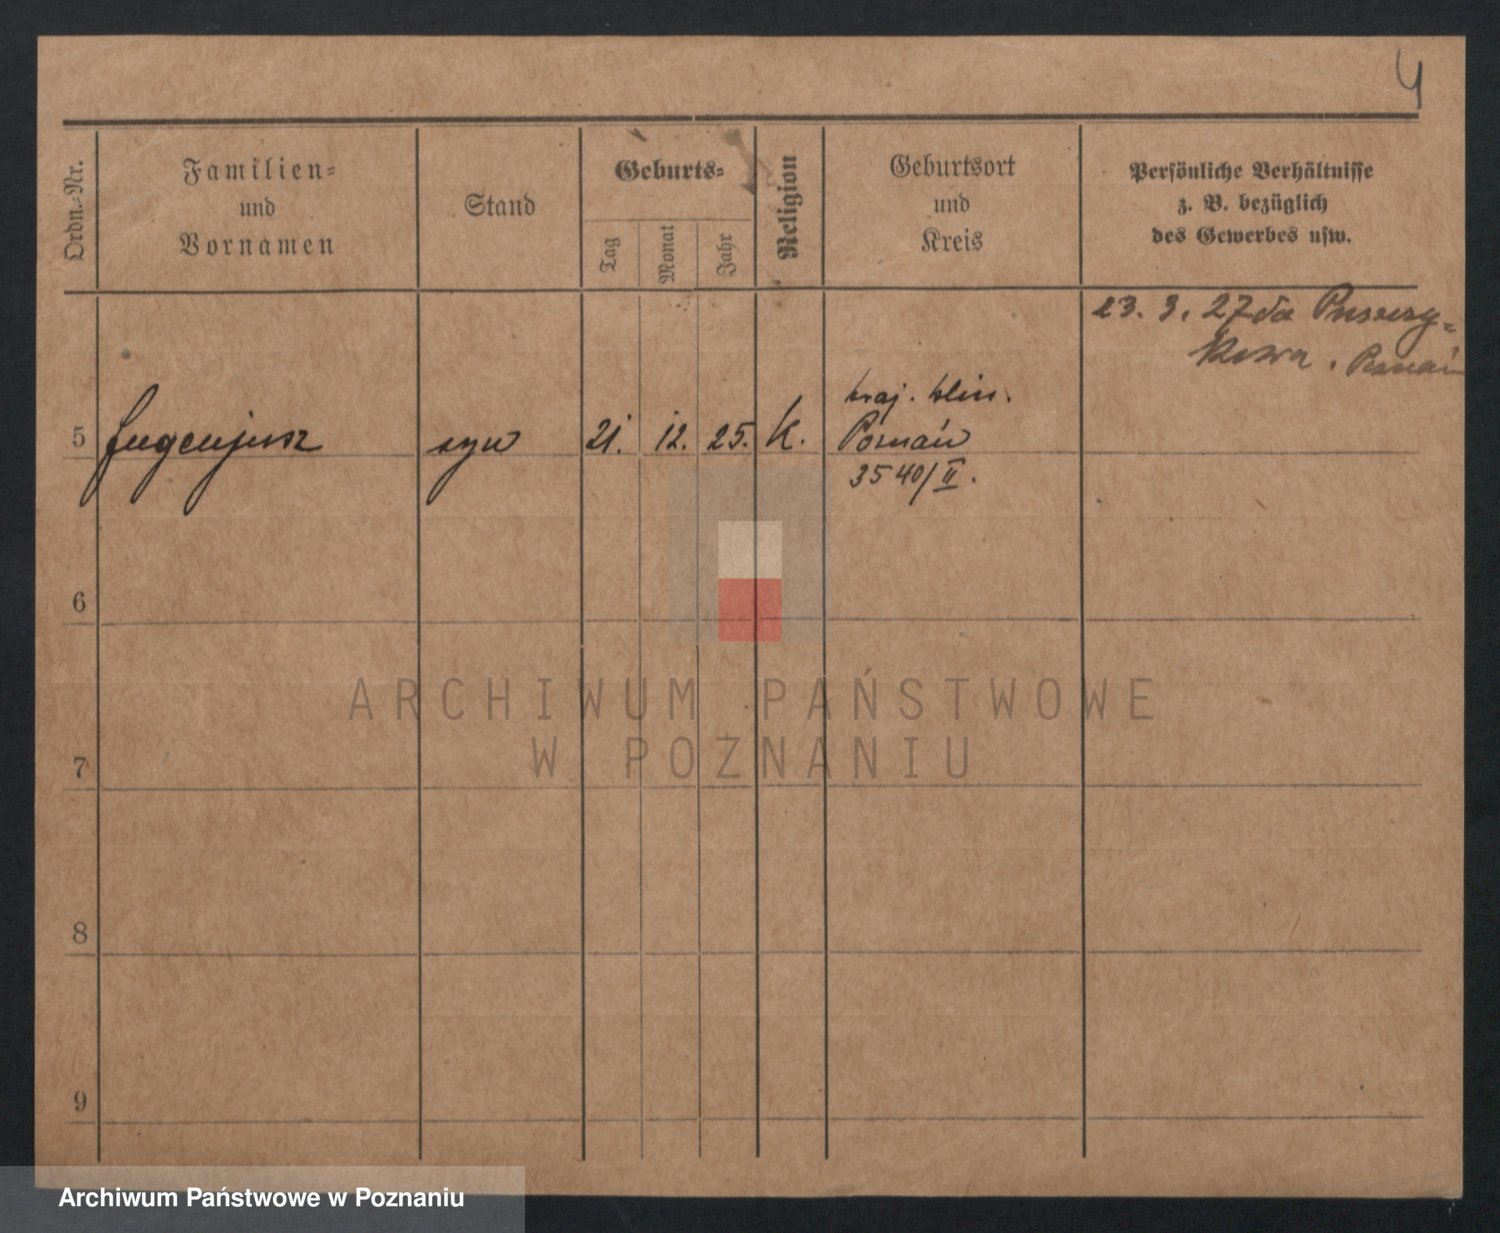 4
Ordn.-Nr.
Familien-
und
Vornamen
Stand
Geburts-
Tag
Monat
Jahr
Religion
Geburtsort
und
Kreis
Persönliche Verhältnisse
z. B. bezüglich
des Gewerbes usw.
23. 3. 27 do Puszczy-
kowa. Poznań
kraj. klin.
5 Eugenjusz syn 21. 12. 25. k. Poznań
3540/II.
6
7
8
9
ARCHIWUM PAŃSTWOWE
W POZNANIU
Archiwum Państwowe w Poznaniu